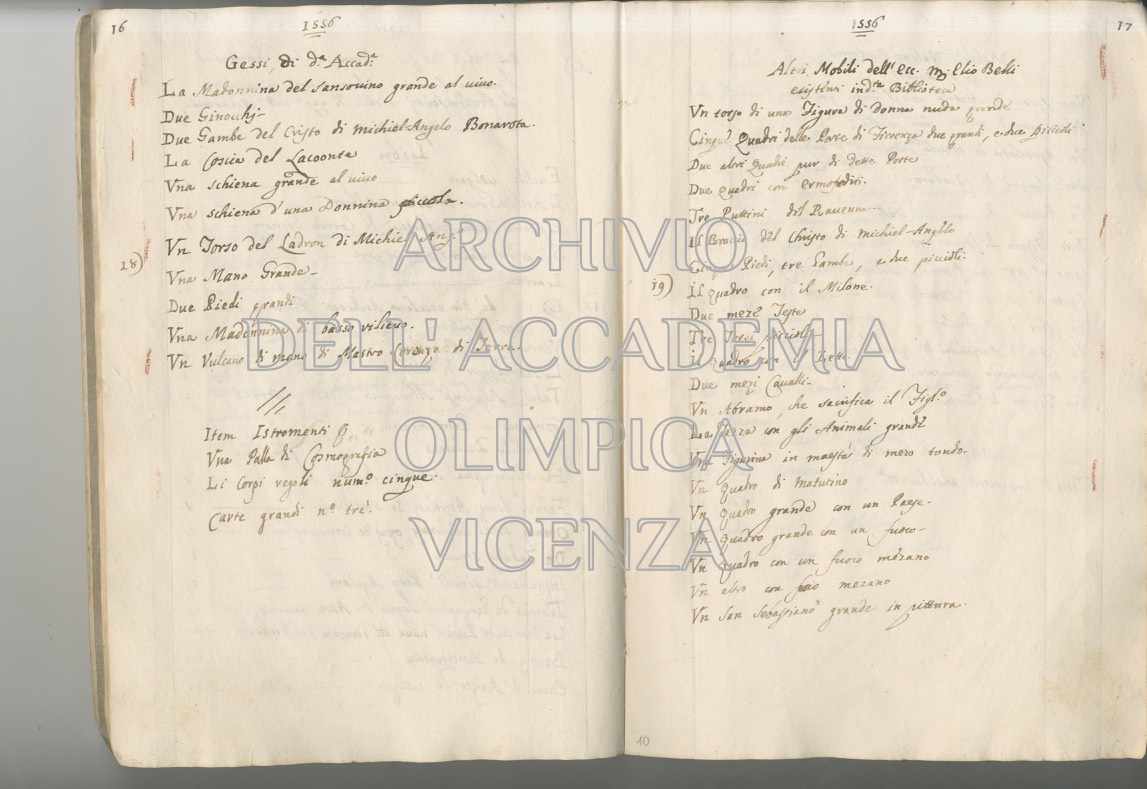 16
1556
Gessi, di d.ª Accad.ª
La Madonnina del Sansovino grande al vivo.
Due Ginocchj
Due Gambe del Cristo di Michiel-Angelo Bonarota.
La Coscia del Lacoonte
Vna schiena grande al vivo
Vna schiena d'una Donnina piccola.
Vn Torso del Ladron di Michiel Ang.º
18)
Vna Mano Grande
Due Piedi grandi
Vna Madonnina di basso rilievo.
Vn Vulcano di mano di Mastro Lorenzo, di Terra.
Item Istromenti
Vna Palla di Cosmografia
Li Corpi regoli num.º cinque.
Carte grandi n.º tre.
1556
17
Altri Mobili dell' Ecc. Elio Belli
esistenti in d.ta Biblioteca
Vn torso di una Figura di donna nuda grande
Cinque Quadri delle Porte di Firrenza due grandi, e due Piccioli
Due altri Quadri pur di dette Porte
Due quadri con ermofroditi.
Tre Puttini del Ravenna
Il Braccio del Christo di Michiel-Angelo
Piedi, tre Gambe, e due piccioli.
19)
Il Quadro con il Milone.
Due meze Teste
Tre Torsi piccioli
Il Quadro con
Due mezi Cavalli
Vn Abramo, che sacrifica il Figl.º
La con gli Animali grande
Vna Figurina in maestà di mezo tondo.
Vn Quadro di Maturino
Vn Quadro grande con un Paese.
Vn Quadro grande con un fuoco
Vn Quadro con un fuoco mezano
Vn altro con mezano
Vn San Sebastiano grande in pittura.
10
ARCHIVIO
DELL' ACCADEMIA
OLIMPICA
VICENZA